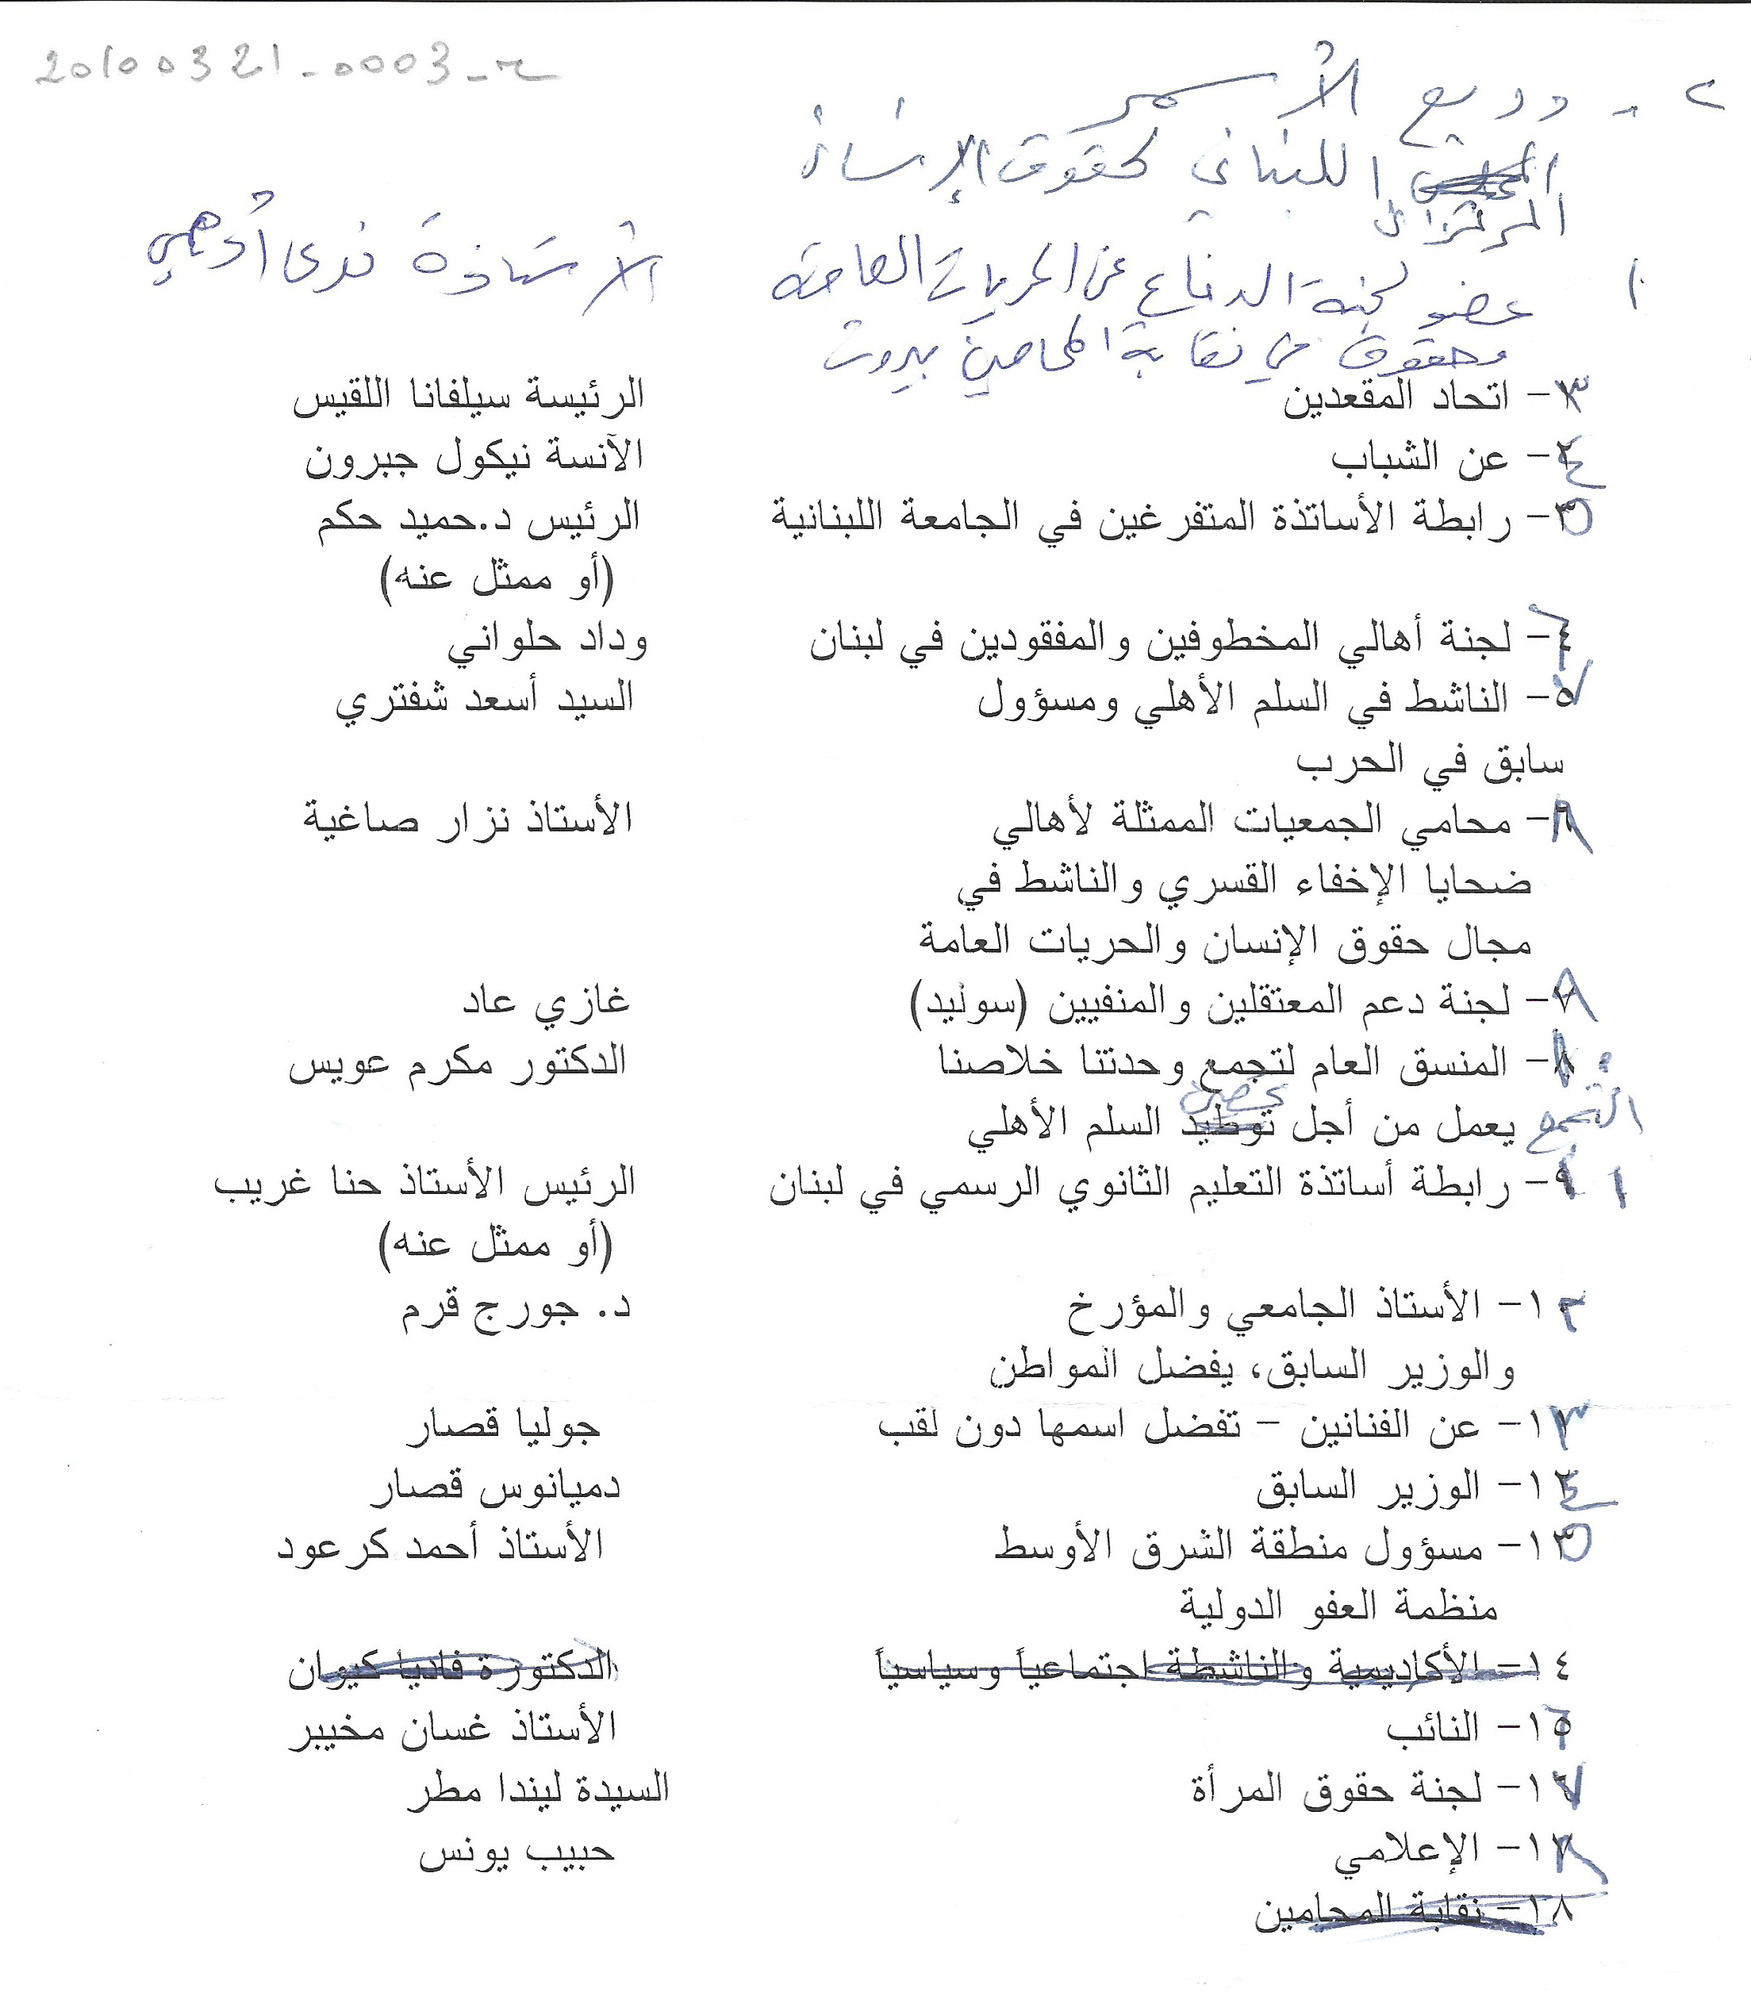 20100321-0003-2
٢ - وديع الأسمر
المركز اللبناني لحقوق الإنسان
١ عضو لجنة الدفاع عن الحريات العامة الأستاذة ندى أدهمي
وحقوق في نقابة المحامين بيروت
٣- اتحاد المقعدين الرئيسة سيلفانا اللقيس
٤- عن الشباب الآنسة نيكول جبرون
٥- رابطة الأساتذة المتفرغين في الجامعة اللبنانية الرئيس د.حميد حكم
(أو ممثل عنه)
٦- لجنة أهالي المخطوفين والمفقودين في لبنان وداد حلواني
٧- الناشط في السلم الأهلي ومسؤول السيد أسعد شفتري
سابق في الحرب
٨- محامي الجمعيات الممثلة لأهالي الأستاذ نزار صاغية
ضحايا الإخفاء القسري والناشط في
مجال حقوق الإنسان والحريات العامة
٩- لجنة دعم المعتقلين والمنفيين (سوليد) غازي عاد
١٠- المنسق العام لتجمع وحدتنا خلاصنا الدكتور مكرم عويس
التجمع يعمل من أجل توطيد تحصين السلم الأهلي
١١- رابطة أساتذة التعليم الثانوي الرسمي في لبنان الرئيس الأستاذ حنا غريب
(أو ممثل عنه)
١٢- الأستاذ الجامعي والمؤرخ د. جورج قرم
والوزير السابق، يفضل المواطن
١٣- عن الفنانين - تفضل اسمها دون لقب جوليا قصار
١٤- الوزير السابق دميانوس قصار
١٥- مسؤول منطقة الشرق الأوسط الأستاذ أحمد كرعود
منظمة العفو الدولية
١٤- الأكاديمية والناشطة اجتماعياً وسياسياً الدكتورة فاديا كيوان
١٦- النائب الأستاذ غسان مخيبر
١٧- لجنة حقوق المرأة السيدة ليندا مطر
١٨- الإعلامي حبيب يونس
١٨- نقابة المحامين